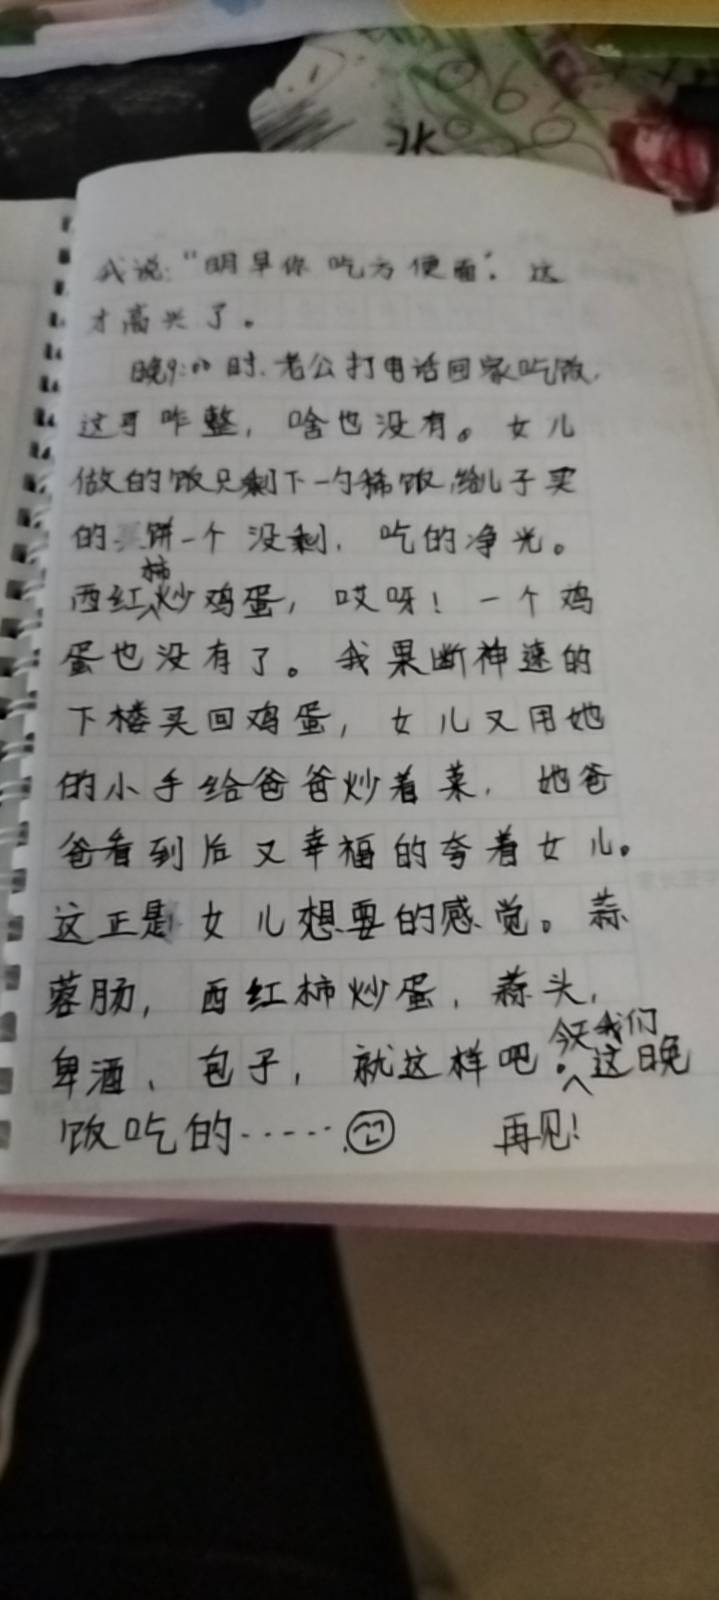 我说:“明早你吃方便面”。这
才高兴了。
晚9:00时.老公打电话回家吃饭,
这可咋整,啥也没有。女儿
做的饭只剩下一勺稀饭,给儿子买
的饼一个没剩,吃的净光。
西红柿炒鸡蛋,哎呀!一个鸡
蛋也没有了。我果断神速的
下楼买回鸡蛋,女儿又用她
的小手给爸爸炒着菜,她爸
爸看到后又幸福的夸着女儿。
这正是女儿想要的感觉。蒜
蓉肠,西红柿炒蛋,蒜头,
卑酒、包子,就这样吧。今天我们这晚
饭吃的······ 再见!